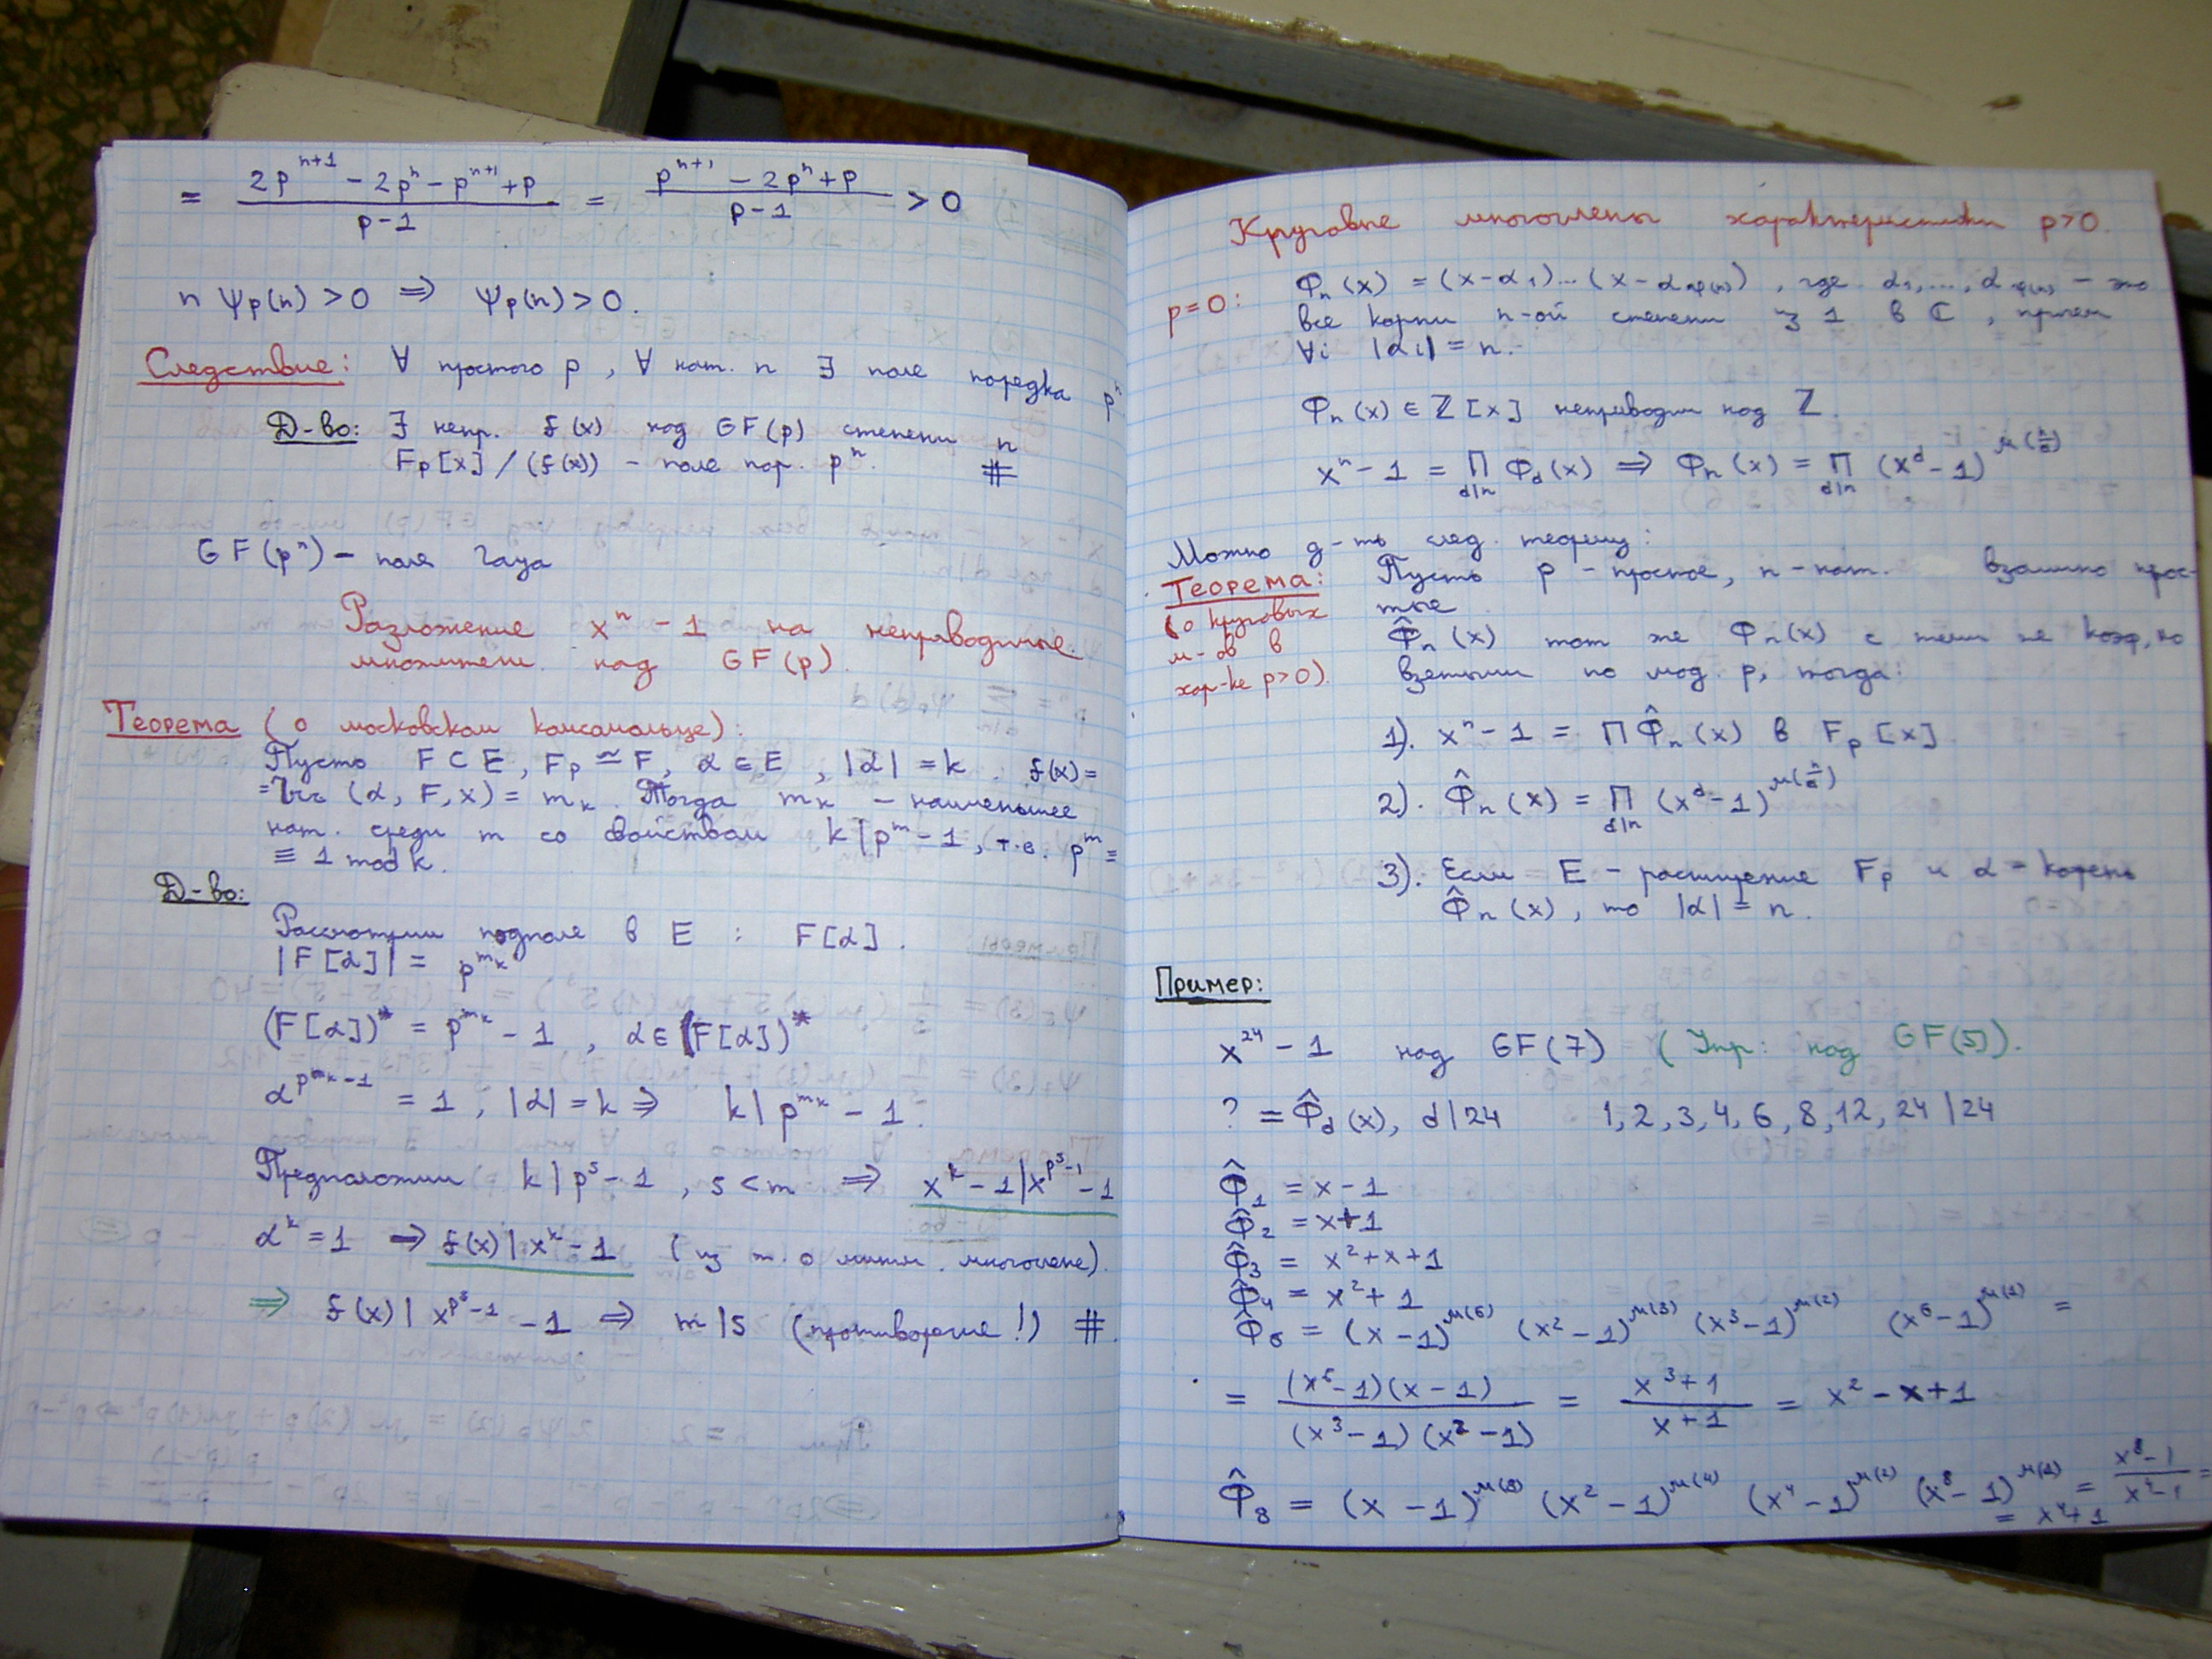 = (2p^{n+1} - 2p^n - p^{n+1} + p)/(p-1) = (p^{n+1} - 2p^n + p)/(p-1) > 0
n ψ_p(n) > 0 ⇒ ψ_p(n) > 0.
Следствие: ∀ простого p, ∀ нат. n ∃ поле порядка p^n
Д-во: ∃ непр. f(x) над GF(p) степени n
F_p[x] / (f(x)) - поле пор. p^n. #
GF(p^n) - поля Галуа
Разложение x^n - 1 на неприводимые
множители над GF(p).
Теорема (о московском комсомольце):
Пусть F ⊂ E, F_p ≃ F, α ∈ E, |α| = k. f(x) =
= Irr (α, F, x) = m_k. Тогда m_k - наименьшее
нат. среди m со свойством k | p^m - 1, т.е. p^m ≡
≡ 1 mod k.
Д-во:
Рассмотрим подполе в E : F[α].
|F[α]| = p^{m_k}
(F[α])* = p^{m_k} - 1, α ∈ (F[α])*
α^{p^{m_k} - 1} = 1, |α| = k ⇒ k | p^{m_k} - 1.
Предположим k | p^s - 1, s < m ⇒ x^k - 1 | x^{p^s - 1} - 1
α^k = 1 → f(x) | x^k - 1 (из т. о миним. многочлене).
⇒ f(x) | x^{p^s - 1} - 1 ⇒ m | s (противоречие!) #
Круговые многочлены характеристики p>0.
p=0: Φ_n(x) = (x-α_1)...(x-α_{φ(n)}), где α_1,...,α_{φ(n)} - это
все корни n-ой степени из 1 в ℂ, причем
∀i |α_i| = n.
Φ_n(x) ∈ ℤ[x] неприводим над ℤ.
x^n - 1 = ∏_{d|n} Φ_d(x) ⇒ Φ_n(x) = ∏_{d|n} (x^d - 1)^{μ(n/d)}
Можно д-ть след. теорему:
Теорема: Пусть p - простое, n - нат. взаимно прос-
(о круговых тые
м-ов в Φ̂_n(x) тот же Φ_n(x) с теми же коэф, но
хар-ке p>0). взятыми по мод. p, тогда:
1). x^n - 1 = ∏ Φ̂_n(x) в F_p[x]
2). Φ̂_n(x) = ∏_{d|n} (x^d - 1)^{μ(n/d)}
3). Если E - расширение F_p и α - корень
Φ̂_n(x), то |α| = n.
Пример:
x^{24} - 1 над GF(7) (Упр: над GF(5)).
? = Φ̂_d(x), d|24 1, 2, 3, 4, 6, 8, 12, 24 | 24
Φ̂_1 = x - 1
Φ̂_2 = x + 1
Φ̂_3 = x^2 + x + 1
Φ̂_4 = x^2 + 1
Φ̂_6 = (x - 1)^{μ(6)} (x^2 - 1)^{μ(3)} (x^3 - 1)^{μ(2)} (x^6 - 1)^{μ(1)} =
= ((x^6 - 1)(x - 1))/((x^3 - 1)(x^2 - 1)) = (x^3 + 1)/(x + 1) = x^2 - x + 1
Φ̂_8 = (x - 1)^{μ(8)} (x^2 - 1)^{μ(4)} (x^4 - 1)^{μ(2)} (x^8 - 1)^{μ(1)} = (x^8 - 1)/(x^4 - 1) =
= x^4 + 1